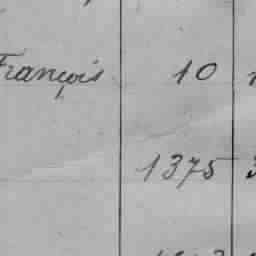 François 10
1375